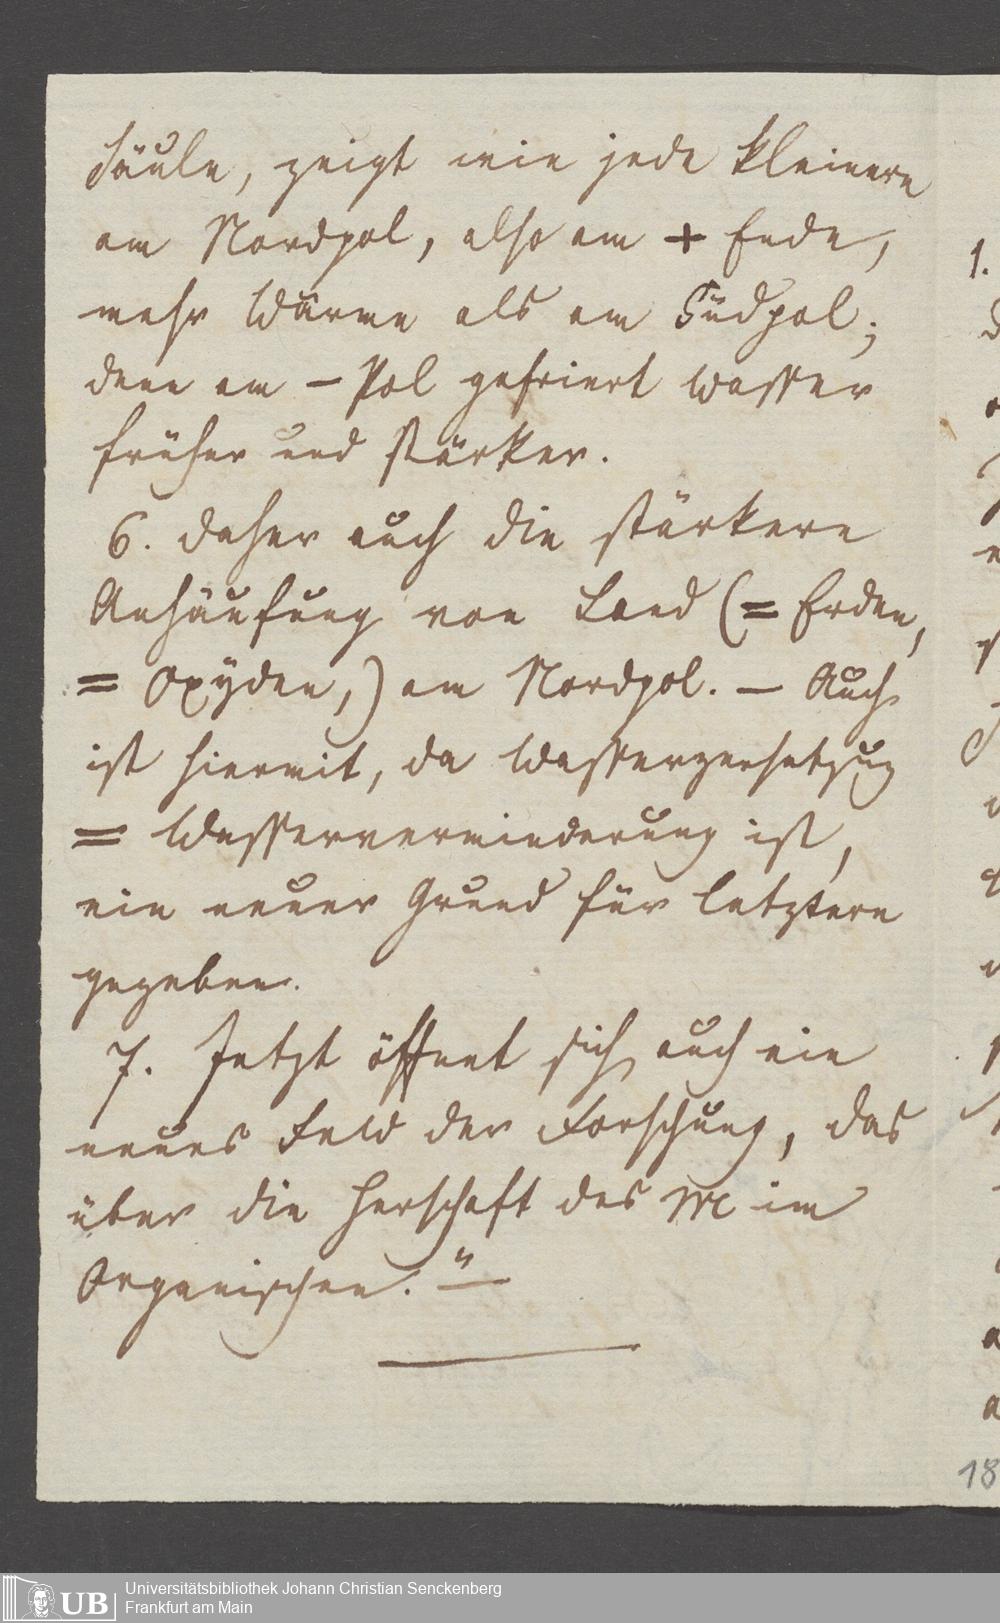 Säule, zeigt wie jede kleinere
am Nordpol, also am + Ende,
mehr Wärme als am Südpol;
denn am – Pol gefriert Wasser
früher und stärker.
6. Daher auch die stärkere
Anhäufung von Land (= Erden,
= Oxÿden,) am Nordpol. — Auch
ist hiermit, da Wasserzersetzug
= Wasserverminderung ist,
ein neuer Grund für letztere
gegeben.
7. Jetzt öffnet sich auch ein
neues Feld der Forschung, das
über die Herschaft des M im
Organischen." —
1.
18
Universitätsbibliothek Johann Christian Senckenberg
Frankfurt am Main
UB